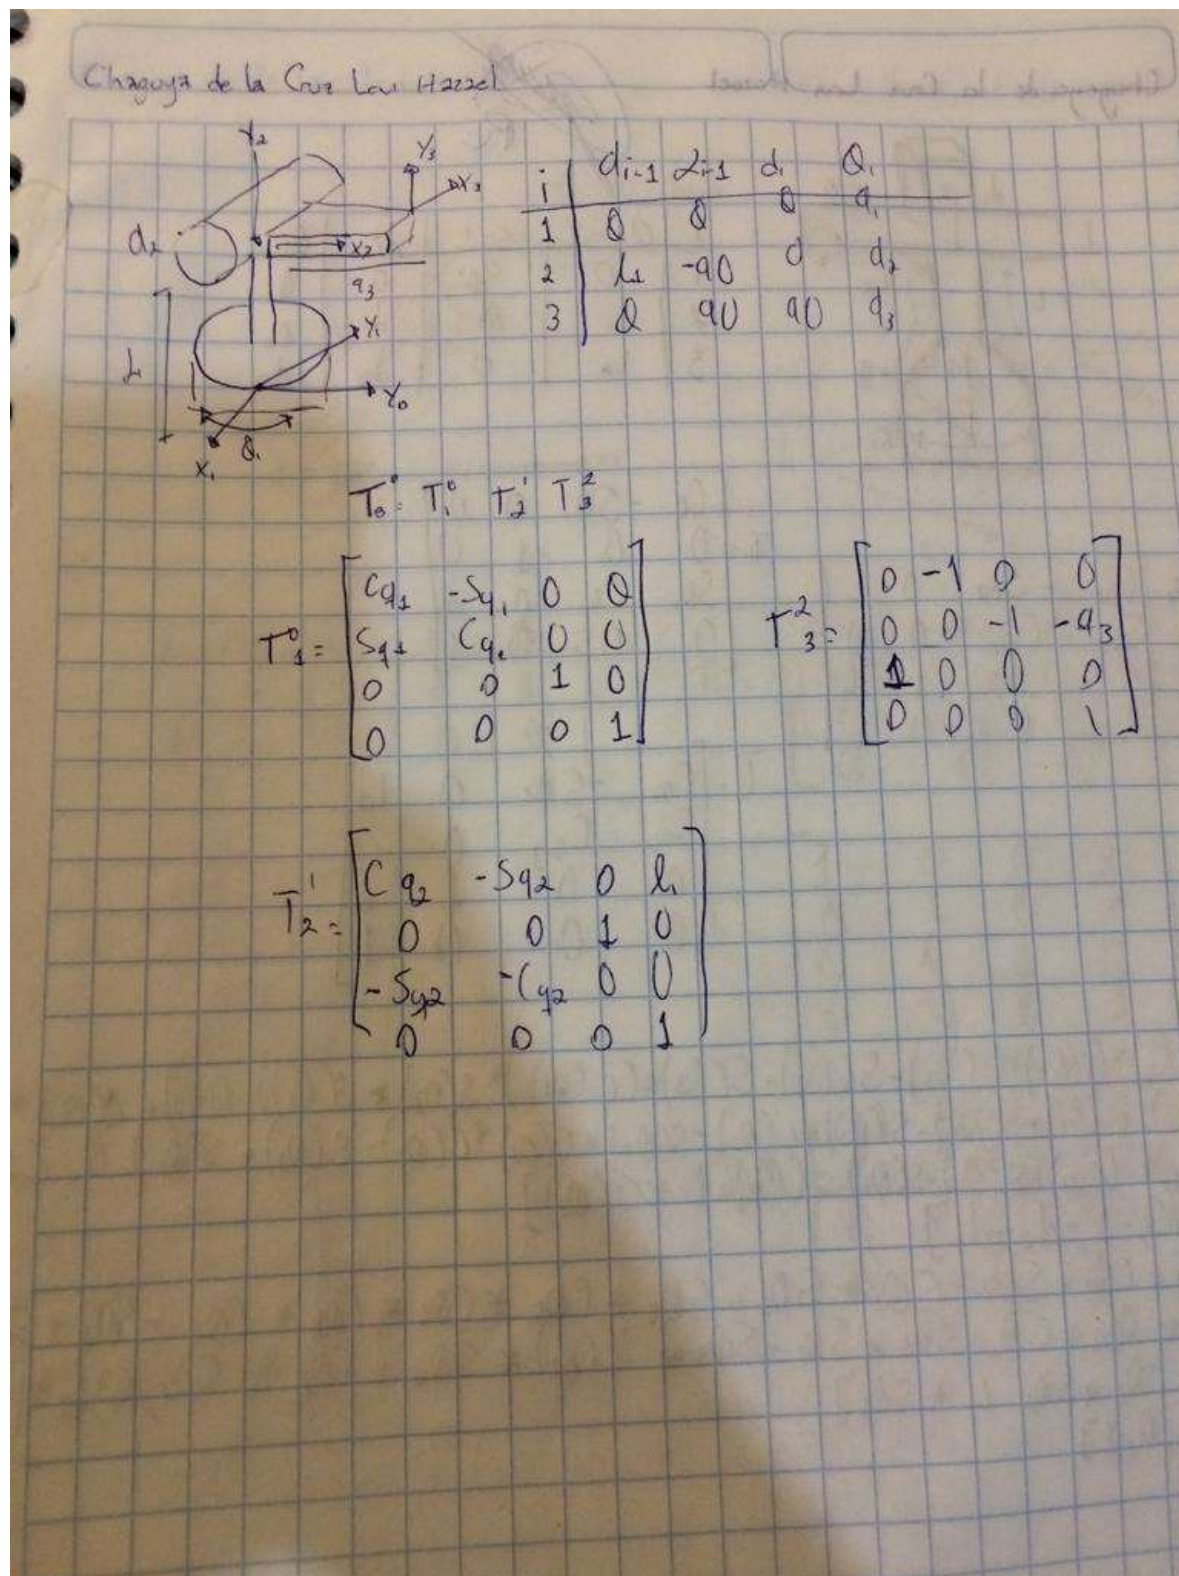 Chaguya de la Cruz Hazael
Y₂
Y₃
X₃
X₂
q₃
Y₁
L
Y₀
X₁
θ₁
i dᵢ₋₁ αᵢ₋₁ dᵢ θᵢ
1 0 0 0 q₁
2 L₁ -90 0 q₂
3 0 90 90 q₃
T⁰ T₁⁰ T₂¹ T₃²
T₁⁰ =
Cq₁ -Sq₁ 0 0
Sq₁ Cq₁ 0 0
0 0 1 0
0 0 0 1
T₃² =
0 -1 0 0
0 0 -1 -q₃
1 0 0 0
0 0 0 1
T₂¹ =
Cq₂ -Sq₂ 0 l₁
0 0 1 0
-Sq₂ -Cq₂ 0 0
0 0 0 1